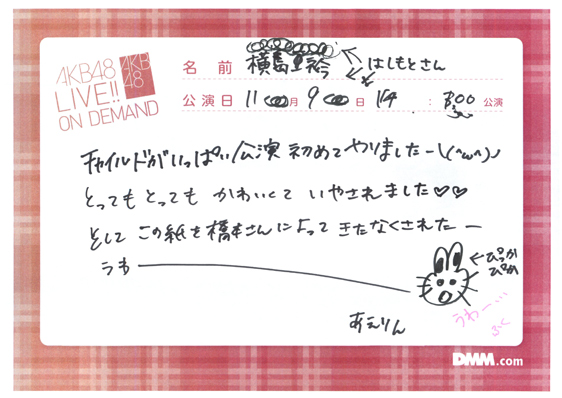 AKB48
LIVE!!
ON DEMAND
AKB
48
名前 横島亜衿 はしもとさん
公演日 11月9日 : 公演
チャイルドがいっぱい公演初めてやりましたー\(^ω^)/
とってもとっても かわいくて いやされました♡♡
そして この紙を橋本さんによって きたなくされたー
うわー
ぴっか
ぴか
うわー…
ふく
あえりん
DMM.com